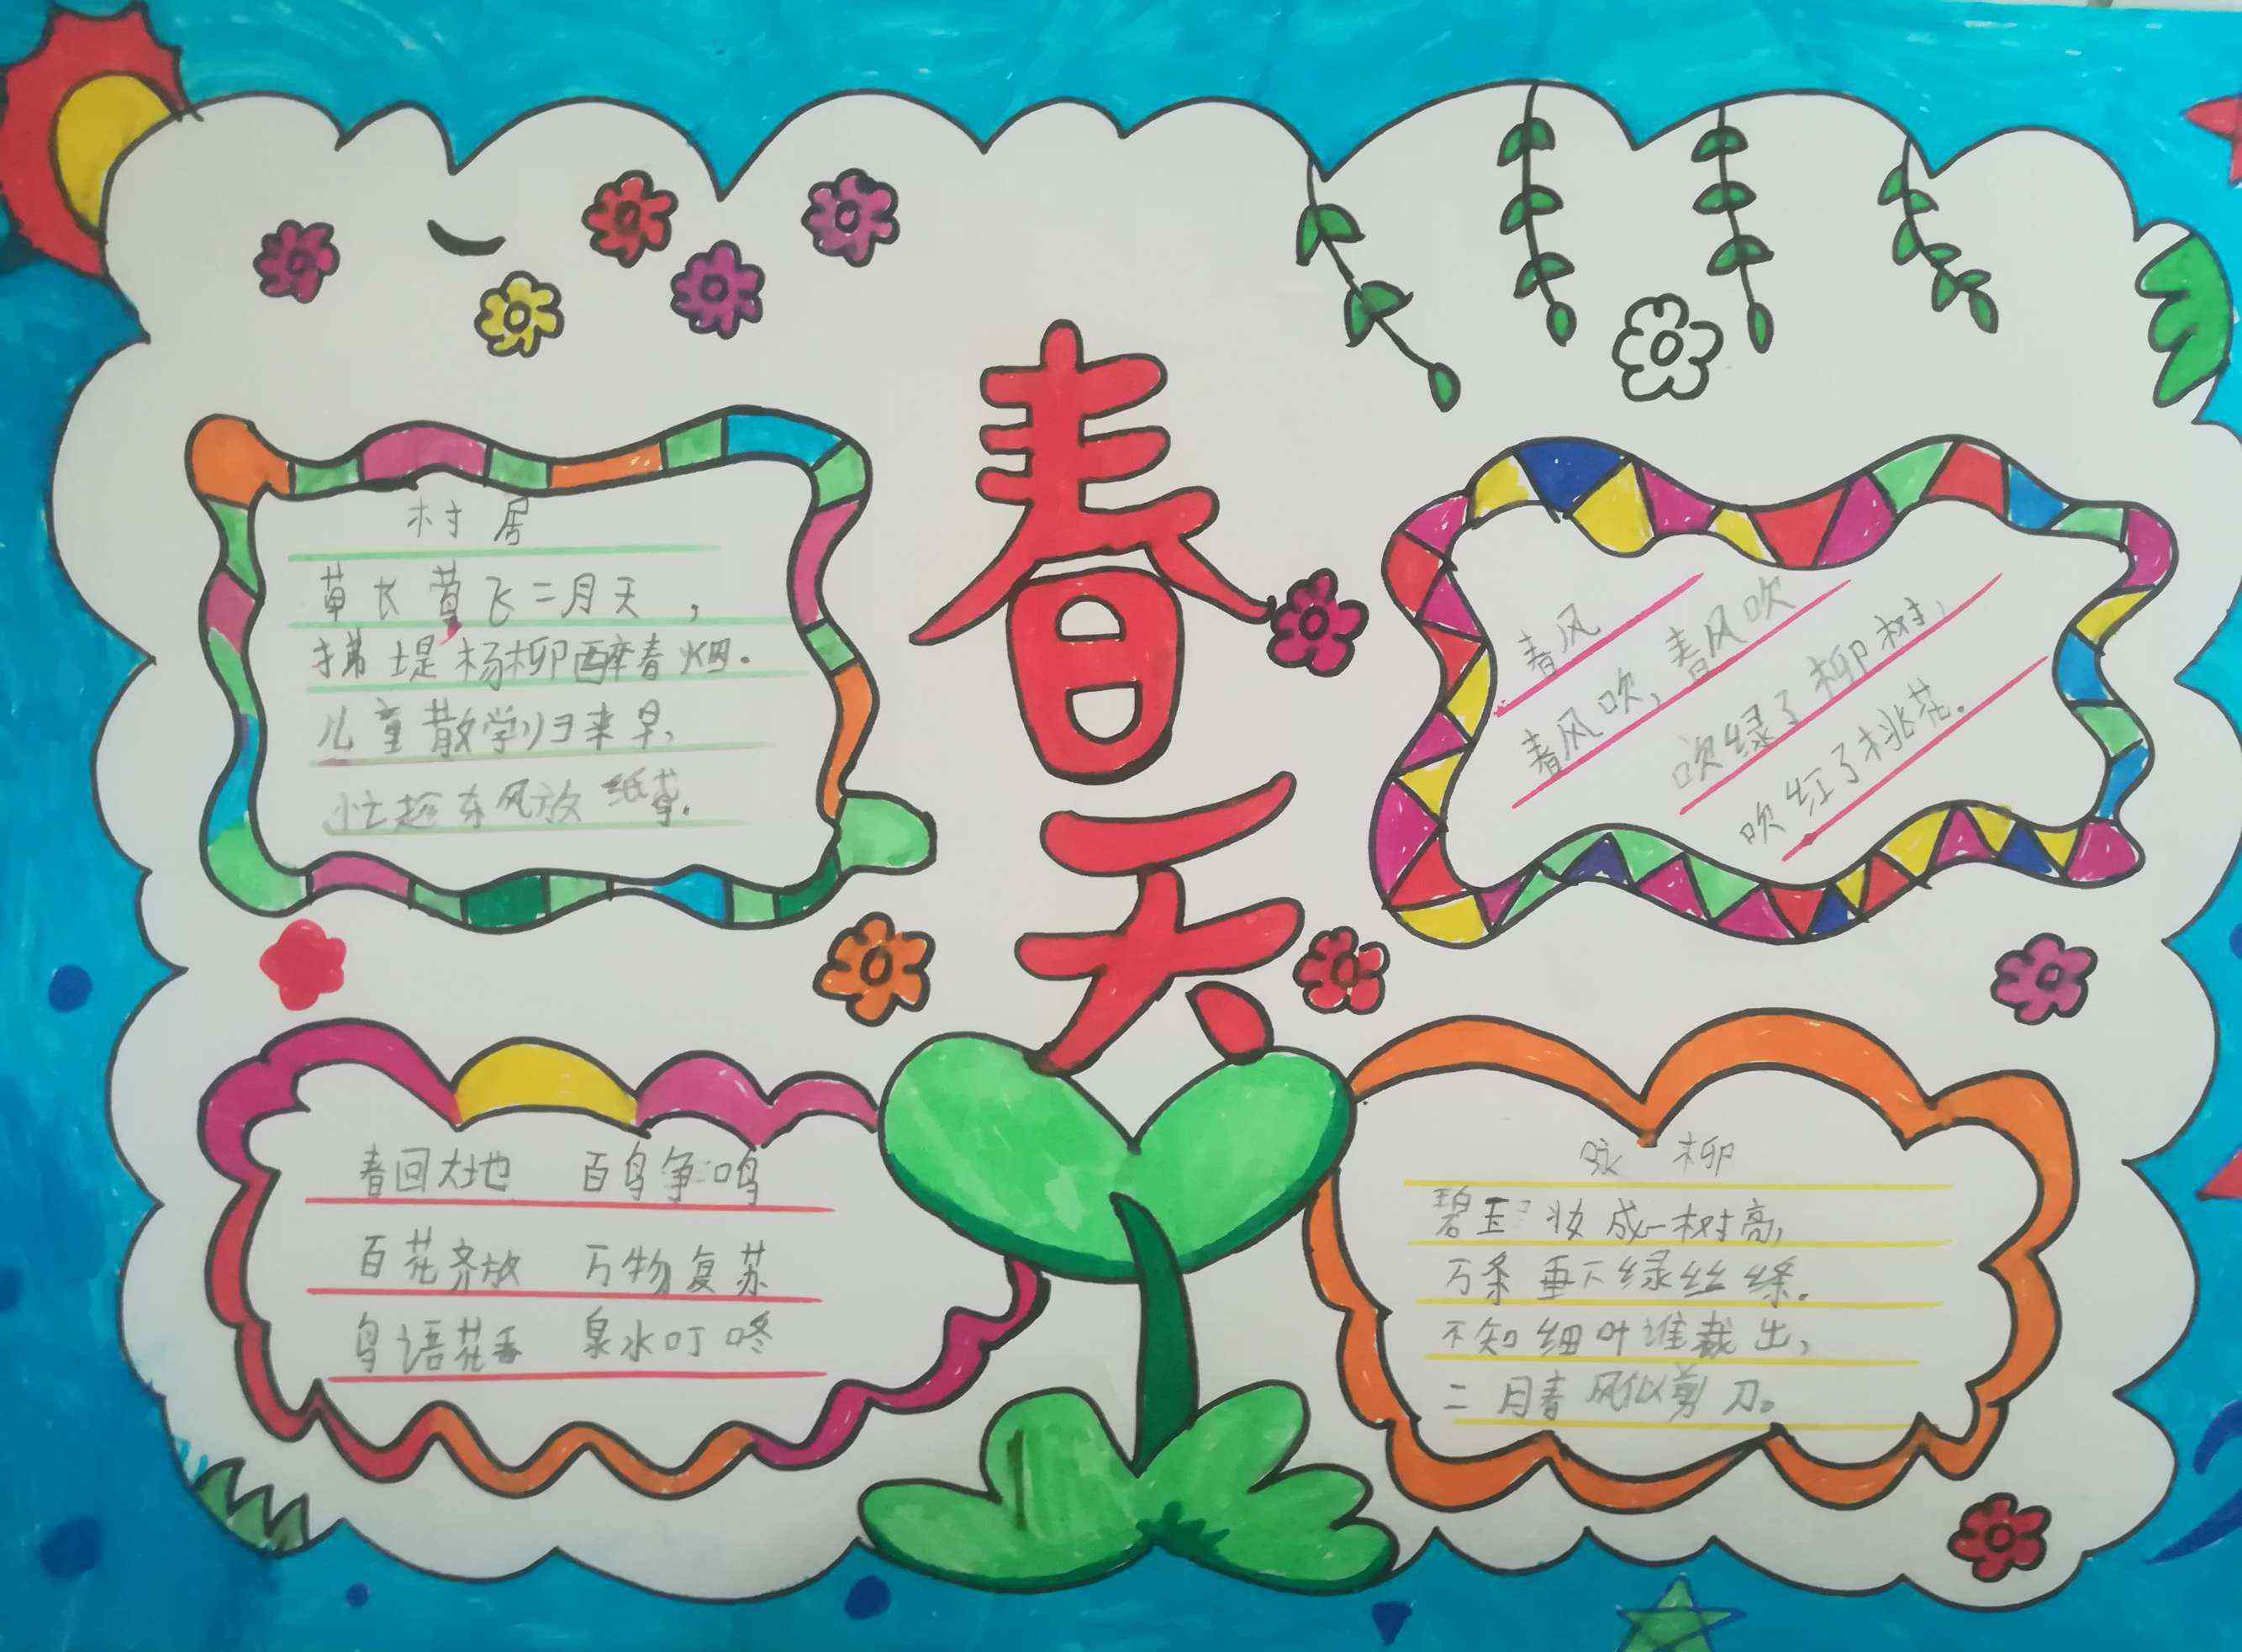 春天
村居
草长莺飞二月天，
拂堤杨柳醉春烟.
儿童散学归来早，
忙趁东风放纸鸢.
春风
春风吹，春风吹
吹绿了柳树，
吹红了桃花.
春回大地 百鸟争鸣
百花齐放 万物复苏
鸟语花香 泉水叮咚
咏柳
碧玉妆成一树高，
万条垂下绿丝绦.
不知细叶谁裁出，
二月春风似剪刀。